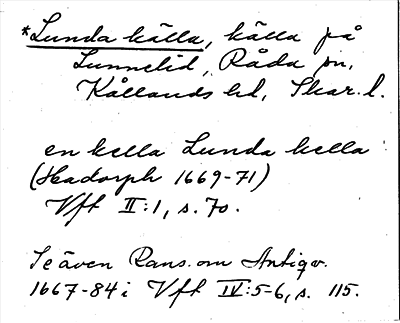 *Lunda källa, källa på
Lunnelid, Råda sn,
Kållands hd, Skar. l.
en kella Lunda kella
(Hadorph 1669-71)
Vft II:1, s. 70.
Se även Rans. om Antiqv.
1667-84 i Vft IV:5-6, s. 115.